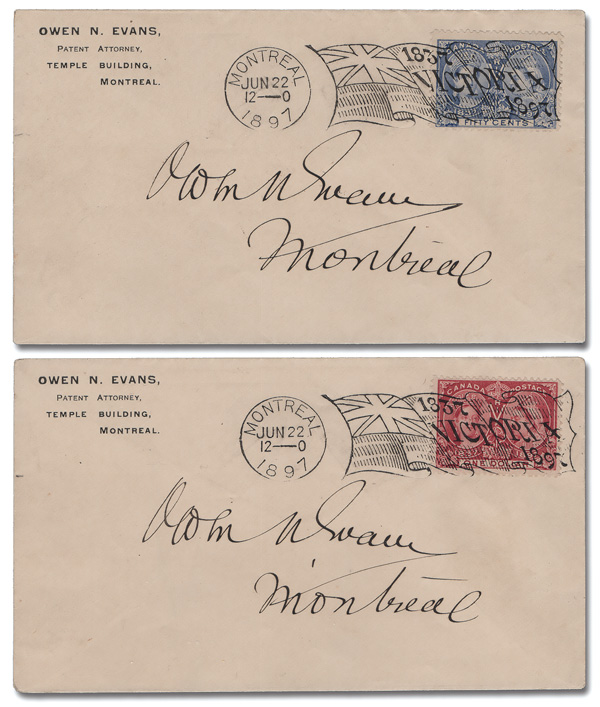 OWEN N. EVANS,
PATENT ATTORNEY,
TEMPLE BUILDING,
MONTREAL.
MONTREAL
JUN 22
12—0
1897
1837
VICTORIA
1897
CANADA POSTAGE
FIFTY CENTS
Owen N Evans
Montreal
OWEN N. EVANS,
PATENT ATTORNEY,
TEMPLE BUILDING,
MONTREAL.
MONTREAL
JUN 22
12—0
1897
1837
VICTORIA
1897
CANADA POSTAGE
Owen N Evans
Montreal